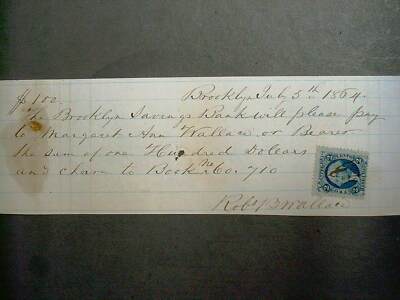 $100. Brooklyn July 5th 1864.
The Brooklyn Savings Bank will please pay
to Margaret Ann Wallace or Bearer
the sum of one Hundred Dollars
and charge to Book No. 710
Robt B Wallace